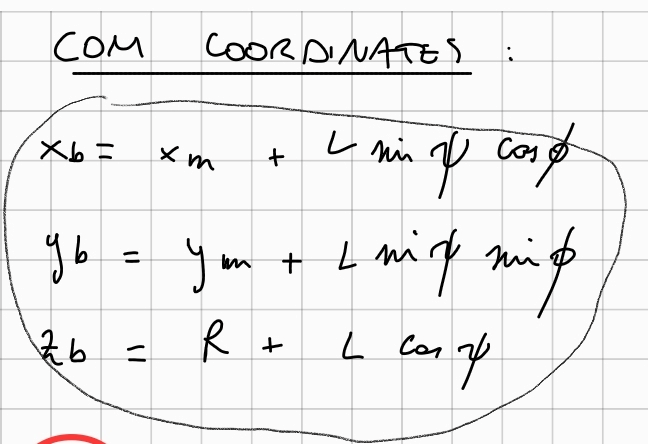 COM COORDINATES :
xb = xm + L sin ψ cos ϕ
yb = ym + L sin ψ sin ϕ
zb = R + L cos ψ